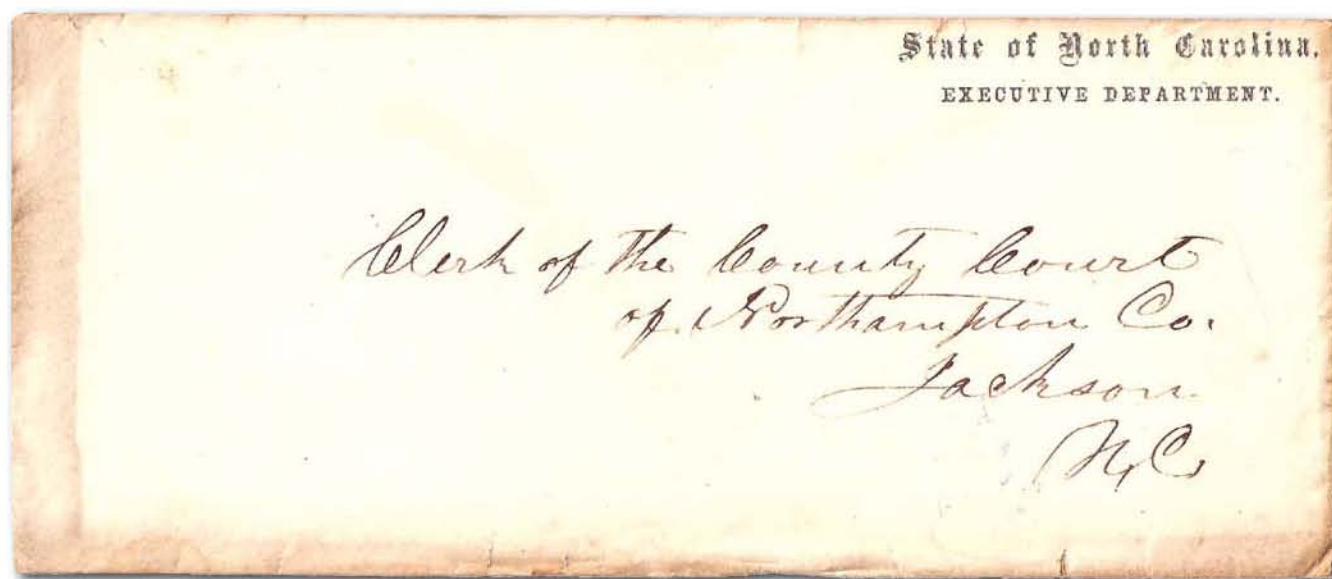 State of North Carolina.
EXECUTIVE DEPARTMENT.
Clerk of the County Court
of Northampton Co.
Jackson
N.C.